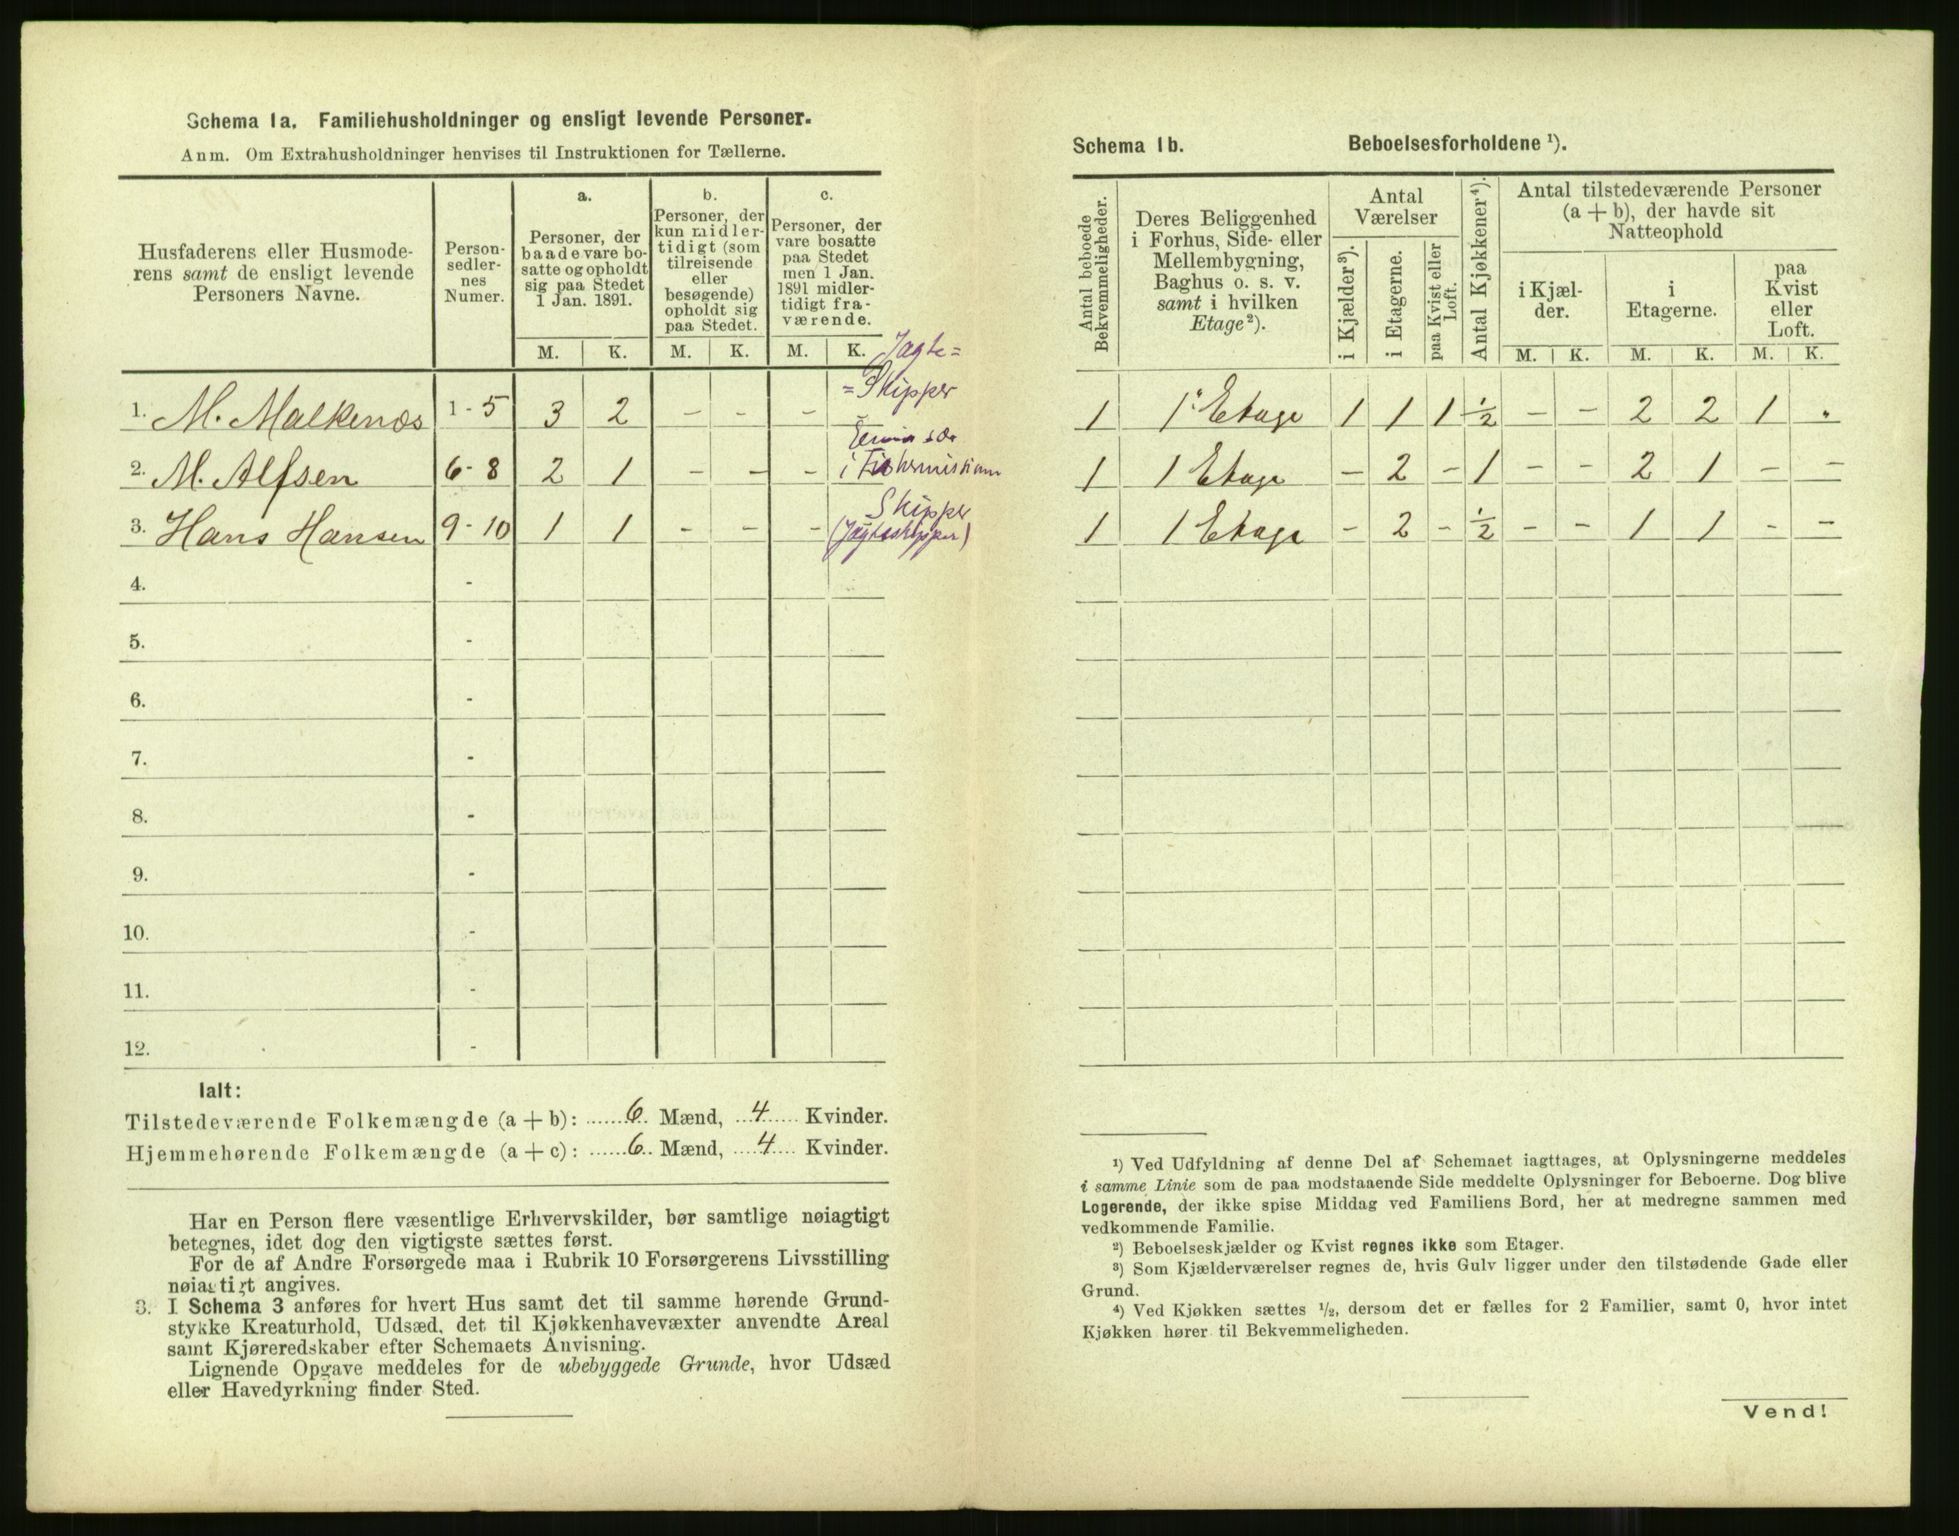 Schema 1a. Familiehusholdninger og ensligt levende Personer.
Anm. Om Extrahusholdninger henvises til Instruktionen for Tællerne.
Husfaderens eller Husmoderens samt de ensligt levende Personers Navne.
Personsedlernes Numer.
a.
Personer, der baade vare bosatte og opholdt sig paa Stedet 1 Jan. 1891.
b.
Personer, der kun midlertidigt (som tilreisende eller besøgende) opholdt sig paa Stedet.
c.
Personer, der vare bosatte paa Stedet men 1 Jan. 1891 midlertidigt fraværende.
M. K. M. K. M. K.
Jagte=
=Skipper
1. M. Malkenæs 1 - 5 3 2 - - -
2. M. Alfsen 6 - 8 2 1 - - -
i
Skipper
3. Hans Hansen 9 - 10 1 1 - - - (Jagteskipper)
4. -
5. -
6. -
7. -
8. -
9. -
10. -
11. -
12. -
Ialt:
Tilstedeværende Folkemængde (a + b): 6 Mænd, 4 Kvinder.
Hjemmehørende Folkemængde (a + c): 6 Mænd, 4 Kvinder.
Har en Person flere væsentlige Erhvervskilder, bør samtlige nøiagtigt
betegnes, idet dog den vigtigste sættes først.
For de af Andre Forsørgede maa i Rubrik 10 Forsørgerens Livsstilling
nøiagtigt angives.
3. I Schema 3 anføres for hvert Hus samt det til samme hørende Grund-
stykke Kreaturhold, Udsæd, det til Kjøkkenhavevæxter anvendte Areal
samt Kjøreredskaber efter Schemaets Anvisning.
Lignende Opgave meddeles for de ubebyggede Grunde, hvor Udsæd
eller Havedyrkning finder Sted.
Schema 1b. Beboelsesforholdene ¹).
Antal beboede Bekvemmeligheder.
Deres Beliggenhed i Forhus, Side- eller Mellembygning, Baghus o. s. v. samt i hvilken Etage ²).
Antal Værelser
i Kjælder ³).
i Etagerne.
paa Kvist eller Loft.
Antal Kjøkkener ⁴).
Antal tilstedeværende Personer (a + b), der havde sit Natteophold
i Kjælder.
i Etagerne.
paa Kvist eller Loft.
M. K. M. K. M. K.
1 1' Etage 1 1 1 ½ - - 2 2 1 "
1 1 Etage - 2 - 1 - - 2 1 - -
1 1 Etage - 2 - ½ - - 1 1 - -
¹) Ved Udfyldning af denne Del af Schemaet iagttages, at Oplysningerne meddeles
i samme Linie som de paa modstaaende Side meddelte Oplysninger for Beboerne. Dog blive
Logerende, der ikke spise Middag ved Familiens Bord, her at medregne sammen med
vedkommende Familie.
²) Beboelseskjælder og Kvist regnes ikke som Etager.
³) Som Kjælderværelser regnes de, hvis Gulv ligger under den tilstødende Gade eller
Grund.
⁴) Ved Kjøkken sættes ½, dersom det er fælles for 2 Familier, samt 0, hvor intet
Kjøkken hører til Bekvemmeligheden.
Vend!